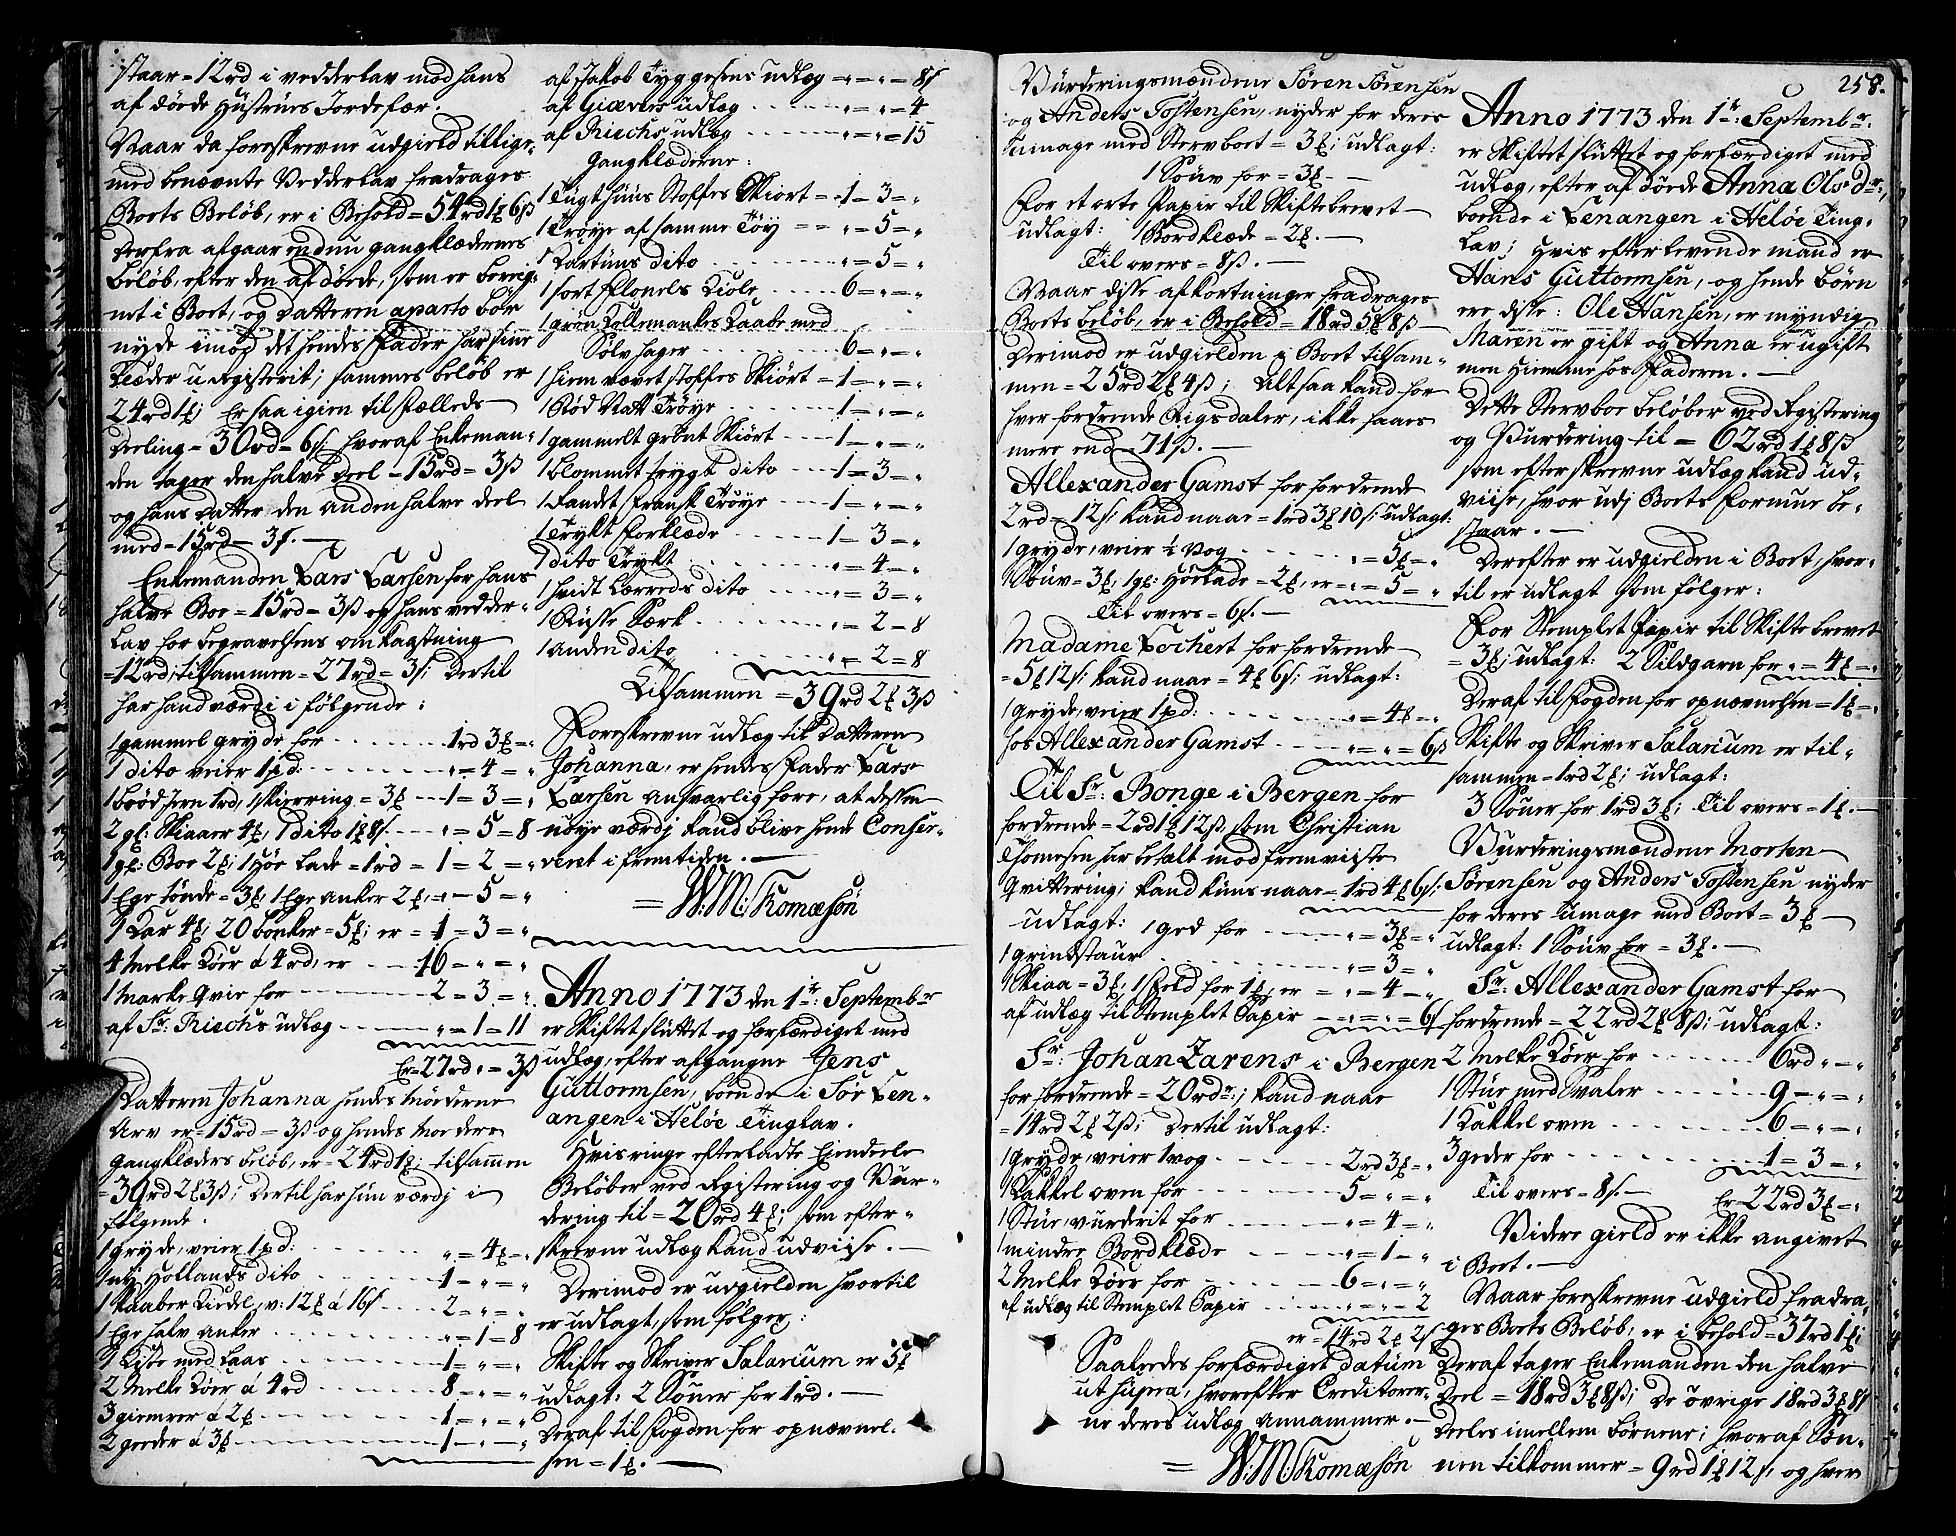 staar = 12rd i vedderlav mod hans
af döde Hustrües Jordefær.
Naar da foreskrevne udgield tillige-
med benævnte Vedderlav fradrages
Boets Beløb, er i Behold = 54rd 1 6ß
Derfra afgaar endnu gangklædernes
beløb, efter den af döde, som er bereg-
net i Boet, og Datteren aparte bör
nyde imod det hendes Fader har sine
Klæder uregisterit; sammes beløb er
24rd 1; Er saa igien til fælleds
Deeling = 30rd = 6ß; hvoraf Enkeman-
den tager den halve Deel = 15rd = 3ß
og hans Datter den anden halve deel
med = 15rd = 3ß.
Enkemanden Lars Larsen for hans
halve Boe = 15rd = 3ß og hans vedder-
lav for begravelsens omkaastning
= 12rd; tilsammen = 27rd = 3ß; Dertil
har hand værdi i følgende:
1 gammel gryde for 1rd 3 = "
1 dito veier 1pd: " = 4 = "
1 bröd Jern 1rd, 1 skierring = 3 1 = 3 = "
2 gl: Skiaaer 4, 1 dito 1 8ß. " = 5 = 8
1 gl: Boe 2; 1 Hör lade = 1rd = 1 = 2 = "
1 Ege tönde = 3, 1 Ege anker 2, = " 5 = "
9 Kar 4, 20 bönker = 5; er = 1 = 3 = "
4 Melke Köer á 4rd, er 16 = " = "
1 Marke Qvie for 2 = 3 = "
af Sr: Riechs udlæg " = 1 = 11
Er = 27rd " = 3ß
Datteren Johanna hendes Möderne
Arv er = 15rd = 3ß og hendes Moders
Gangklæders beløb, er = 24rd 1; tilsammen
= 39rd 2 3ß; Dertil har hun værdj i
følgende.
1 gryde, veier 1pd: " = 4 = "
1 nÿ Hollands dito 1 = " = "
1 Kaaber Kiedel, v: 12 á 16ß 2 = " = "
1 Ege halv Anker " = 1 = 8
1 Kiste med Laas 1 = " = "
2 Melke Köer á 4rd 8 = " = "
3 giemrer á 2 1 = " = "
2 geeder á 3 1 = " = "
af Jakob Tyggesens udlæg " = " = 8ß
af Giævers udlæg " = " = 4
af Riechs udlæg " = " = 15
Gangklæderne:
1 Tugthüüs Stoffes Skiört = 1 = 3 = "
1 Tröye af samme Töy " = 5 = "
1 Kartuns dito " = 5 = "
1 sort Flonels Kiole 6 = " = "
1 grön Kallemankes Kaabe med
Sölv hager 6 = " = "
1 hiem vævet stoffes Skiört = 1 = " = "
1 Röd Natt Tröye 1 = " = "
1 gammelt grönt Skiört 1 = " = "
1 blommet trygt dito 1 = 3 = "
1 Kandet fransk Tröye 1 = " = "
1 Trykt Forklæde 1 = 3 = "
1 dito Trykt " = 4 = "
1 hvidt Lærreds dito " = 3 = "
1 Russe Særk " = 2 = 8
1 anden dito " = 2 = 8
Tilsammen = 39rd 2 3ß
Foreskrevne udlæg til Datteren
Johanna, er hendes Fader Lars
Larsen ansvarlig fore, at dessen
nöye værdj kand blive hende Conser-
veret i fremtiden.
= W: M: Thomæsön
Anno 1773 den 1te: Septembr
er Skiftet sluttet og forfærdiget med
udlæg, efter afgangne Jens
Guttormsen, boende i Sör Len-
angen i Helöe Tinglav.
Hvis ringe efterladte Eiendeele
Beløber ved Registering og Vur-
dering til = 20rd 4; som efter-
skrevne udlæg kand udviise.
Derimod er udgielden hvortil
er udlagt, som følger:
Skifte og Skriver Salarium er 3
udlagt: 2 Söuer for 1rd.
Deraf til Fogden for opnævnel-
sen = 1.
Vurderingsmændene Sören Sörensen
og Anders Tostensen, nyder for deres
umage med Stervboet = 3; udlagt:
1 Söuv for = 3.
For et arte Papir til Skiftebrevet
udlagt: 1 Bordklæde = 2.
Til overs = 8ß.
Naar disse afkortninger fradrages
Boets beløb, er i Behold = 18rd 5 8ß
Derimod er udgielden i Boet tilsam-
men = 25rd 2 4ß; Altsaa kand for
hver fordrende Rigsdaler, ikke faaes
mere end = 71ß.
Allexander Gamst for fordrende
2rd = 12ß; kand naae = 1rd 3 10ß; udlagt:
1 gryde, veier ½ vog " = 5 = "
1 Söuv = 3, 1 gl: Hörlade = 2, er = " = 5 = "
Til overs = 6ß.
Madame Lochert for fordrende
= 5 12ß; kand naae = 4 6ß; udlagt:
1 gryde, veier 1pd: " = 4 = "
hos Allexander Gamst " = " = 6ß
Til Sr: Bonge i Bergen for
fordrende = 2rd 1 12ß, som Christian
Thomesen har betalt mod fremviiste
Qvittering; kand kuns naae = 1rd 4 6ß;
udlagt: 1 grd for " = 3 = "
1 grinkstaur " = 3 = "
1 Skiaa = 3, 1 Feld for 1, er = " = 4 = "
af udlæg til Stemplet Papir " = " = 6ß
Sr: Johan Zarens i Bergen
for fordrende = 20rdr; kand naae
= 14rd 2 2ß; Dertil udlagt:
1 gryde, veier 1 vog 2rd 3 = "
1 Kakkel oven for 5 = " = "
1 Stue, vurderit for " = 4 = "
1 mindre Bordklæde " = 1 = "
2 Melke Köer for 6 = " = "
af udlæg til Stemplet Papir " = " = 2
er = 14rd 2 2ß
Saaledes forfærdiget datum
ut supra, hvorefter Creditorer-
ne deres udlæg annammer.
= W. M: Thomæsön
258.
Anno 1773 den 1te: Septembr:
er Skiftet sluttet og forfærdiget med
udlæg, efter af döde Anna Ols dr,
boende i Lenangen i Helöe Ting-
lav; Hvis efterlevende mand er
Hans Guttormsen, og hendes börn
ere disse: Ole Hansen, er myndig
Maren er gift og Anna er ugift
men hiemme hos Faderen.
Dette Stervboe beløber ved Registering
og Vurdering til = 62rd 1 8ß
som efterskrevne udlæg kand ud-
viise, hvor udj Boets Formue be-
staar.
Derefter er udgielden i Boet, hvor-
til er udlagt som følger:
For Stemplet Papir til Skiftebrevet
= 3; udlagt: 2 Sildgarn for " = 4 = "
Deraf til Fogden for opnævnelsen = 1 = "
Skifte og Skriver Salarium er til-
sammen = 1rd 2; udlagt:
3 Söuer for 1rd 3; Til overs = 1.
Vurderingsmændene Morten
Sörensen og Anders Tostensen nyder
for deres umage med Boet = 3
udlagt: 1 Söuv for = 3.
Sr: Allexander Gamst for
fordrende = 22rd 2 8ß; udlagt:
2 Melke Köer for 6rd " = "
1 Stue med Svaler 9 = " = "
1 Kakkel oven 6 = " = "
3 geder for 1 = 3 = "
Til overs = 8ß. Er = 22rd 3 = "
Videre gield er ikke angivet
i Boet.
Naar foreskrevne udgield fradra-
ges Boets Beløb, er i behold = 37rd 1;
Deraf tager Enkemanden den halve
Deel = 18rd 3 8ß; De övrige 18rd 3 8ß
Deeles imellem börnene; hvoraf Sön-
nen tilkommer = 9rd 1 12ß, og hver